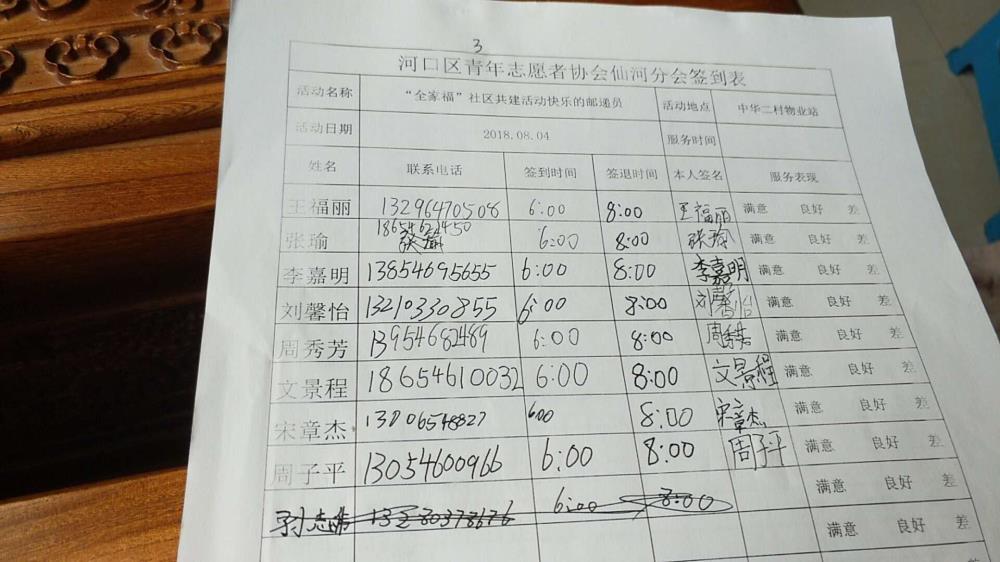 3
河口区青年志愿者协会仙河分会签到表
活动名称 “全家福”社区共建活动快乐的邮递员 活动地点 中华二村物业站
活动日期 2018.08.04 服务时间
姓名 联系电话 签到时间 签退时间 本人签名 服务表现
王福丽 13296470508 6:00 8:00 王福丽 满意 良好 差
张瑜 6:00 8:00 张瑜 满意 良好 差
李嘉明 13854695655 6:00 8:00 李嘉明 满意 良好 差
刘馨怡 13210330855 6:00 8:00 刘馨怡 满意 良好 差
周秀芳 13954682489 6:00 8:00 满意 良好 差
文景程 18654610032 6:00 8:00 文景程 满意 良好 差
宋章杰 13706548827 6:00 8:00 宋章杰 满意 良好 差
周子平 13054600966 6:00 8:00 周子平 满意 良好 差
6:00 8:00 满意 良好 差
满意 良好 差